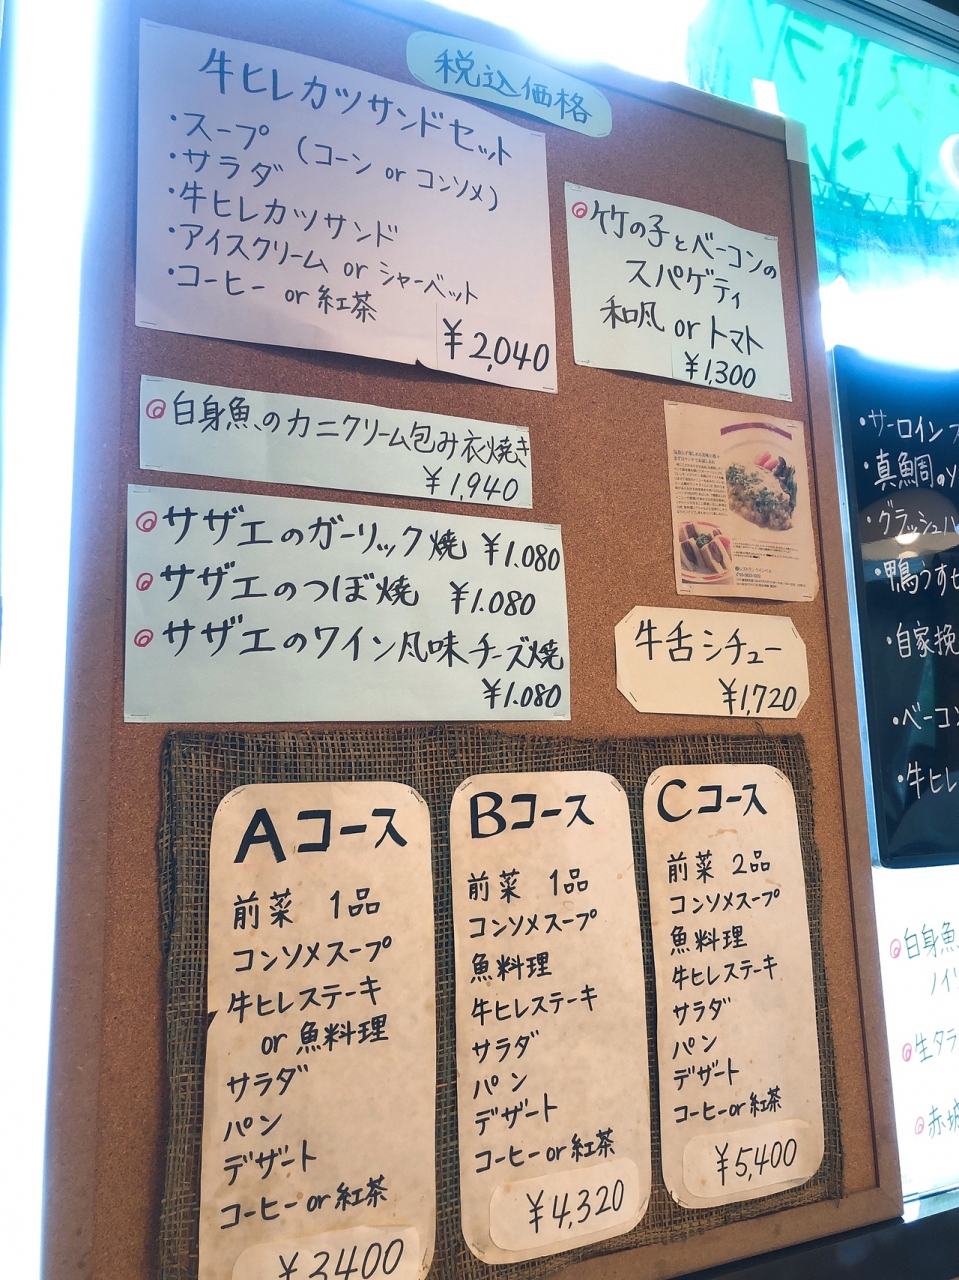 税込価格
牛ヒレカツサンドセット
・スープ (コーン or コンソメ)
・サラダ
・牛ヒレカツサンド
・アイスクリーム or シャーベット
・コーヒー or 紅茶
¥2,040
◎竹の子とベーコンの
スパゲティ
和風 or トマト
¥1,300
◎白身魚のカニクリーム包み衣焼き
¥1,940
◎サザエのガーリック焼 ¥1.080
◎サザエのつぼ焼 ¥1.080
◎サザエのワイン風味チーズ焼
¥1.080
牛舌シチュー
¥1,720
Aコース
前菜 1品
コンソメスープ
牛ヒレステーキ
or 魚料理
サラダ
パン
デザート
コーヒー or 紅茶
¥3400
Bコース
前菜 1品
コンソメスープ
魚料理
牛ヒレステーキ
サラダ
パン
デザート
コーヒー or 紅茶
¥4,320
Cコース
前菜 2品
コンソメスープ
魚料理
牛ヒレステーキ
サラダ
パン
デザート
コーヒー or 紅茶
¥5,400
・サーロイン
・真鯛の
・グラッシュ
・鴨うす
・自家挽
・ベーコン
・牛ヒレ
◎白身魚
◎生タラ
◎赤城